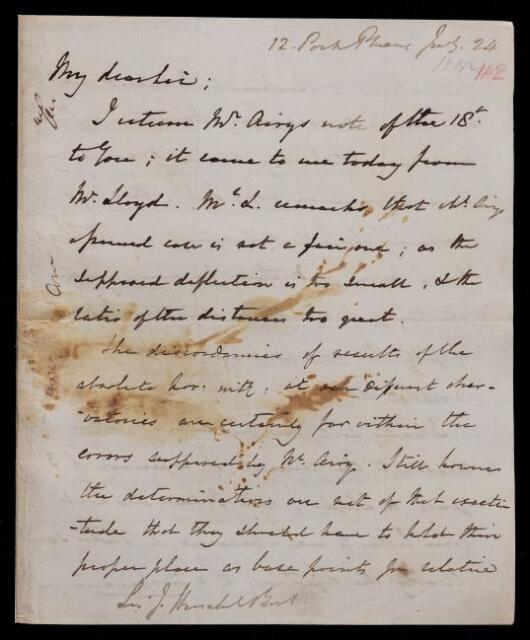 12. Park Place July. 24
1842
142
My dear Sir;
I return Mr. Airy's note of the 18th.
to you; it came to me today from
Mr. Lloyd. Mr. L. remarks that Mr. Airy's
case is not a fair one; as the
supposed deflection is too small, & the
ratio of the distances too great.
The discordancies of results of the
absolute hor: intty: at our different obser-
-vatories are certainly far within the
errors supposed by Mr. Airy. Still however
the determinations are not of that exacti-
-tude that they should have to hold their
proper place as base points for relative
Sir J. Herschel Bart.